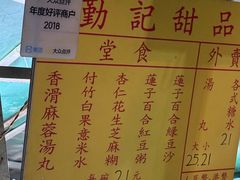 大众点评
年度好评商户
2018
美团
大众点评
勤記甜品
堂食
外賣
蓮子百合綠豆沙
蓮子百合紅豆粥
杏仁花生芝麻糊
付竹白果意米水
香滑麻蓉湯丸
每碗
21
各式糖水
湯丸
21
25